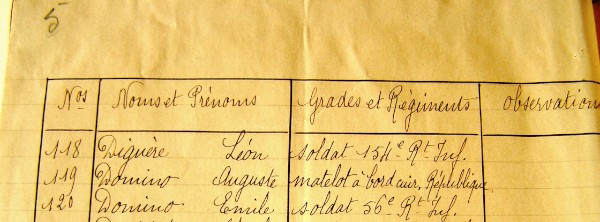 5
Nos Noms et Prénoms Grades et Régiments Observation
118 Diguère Léon soldat 154e Rt Inf.
119 Domino Auguste matelot à bord cuir. République
120 Domino Emile soldat 56e Rt Inf.